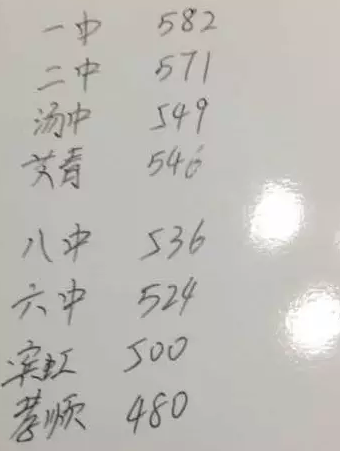 一中 582
二中 571
汤中 549
艾青 546
八中 536
六中 524
宾虹 500
孝顺 480